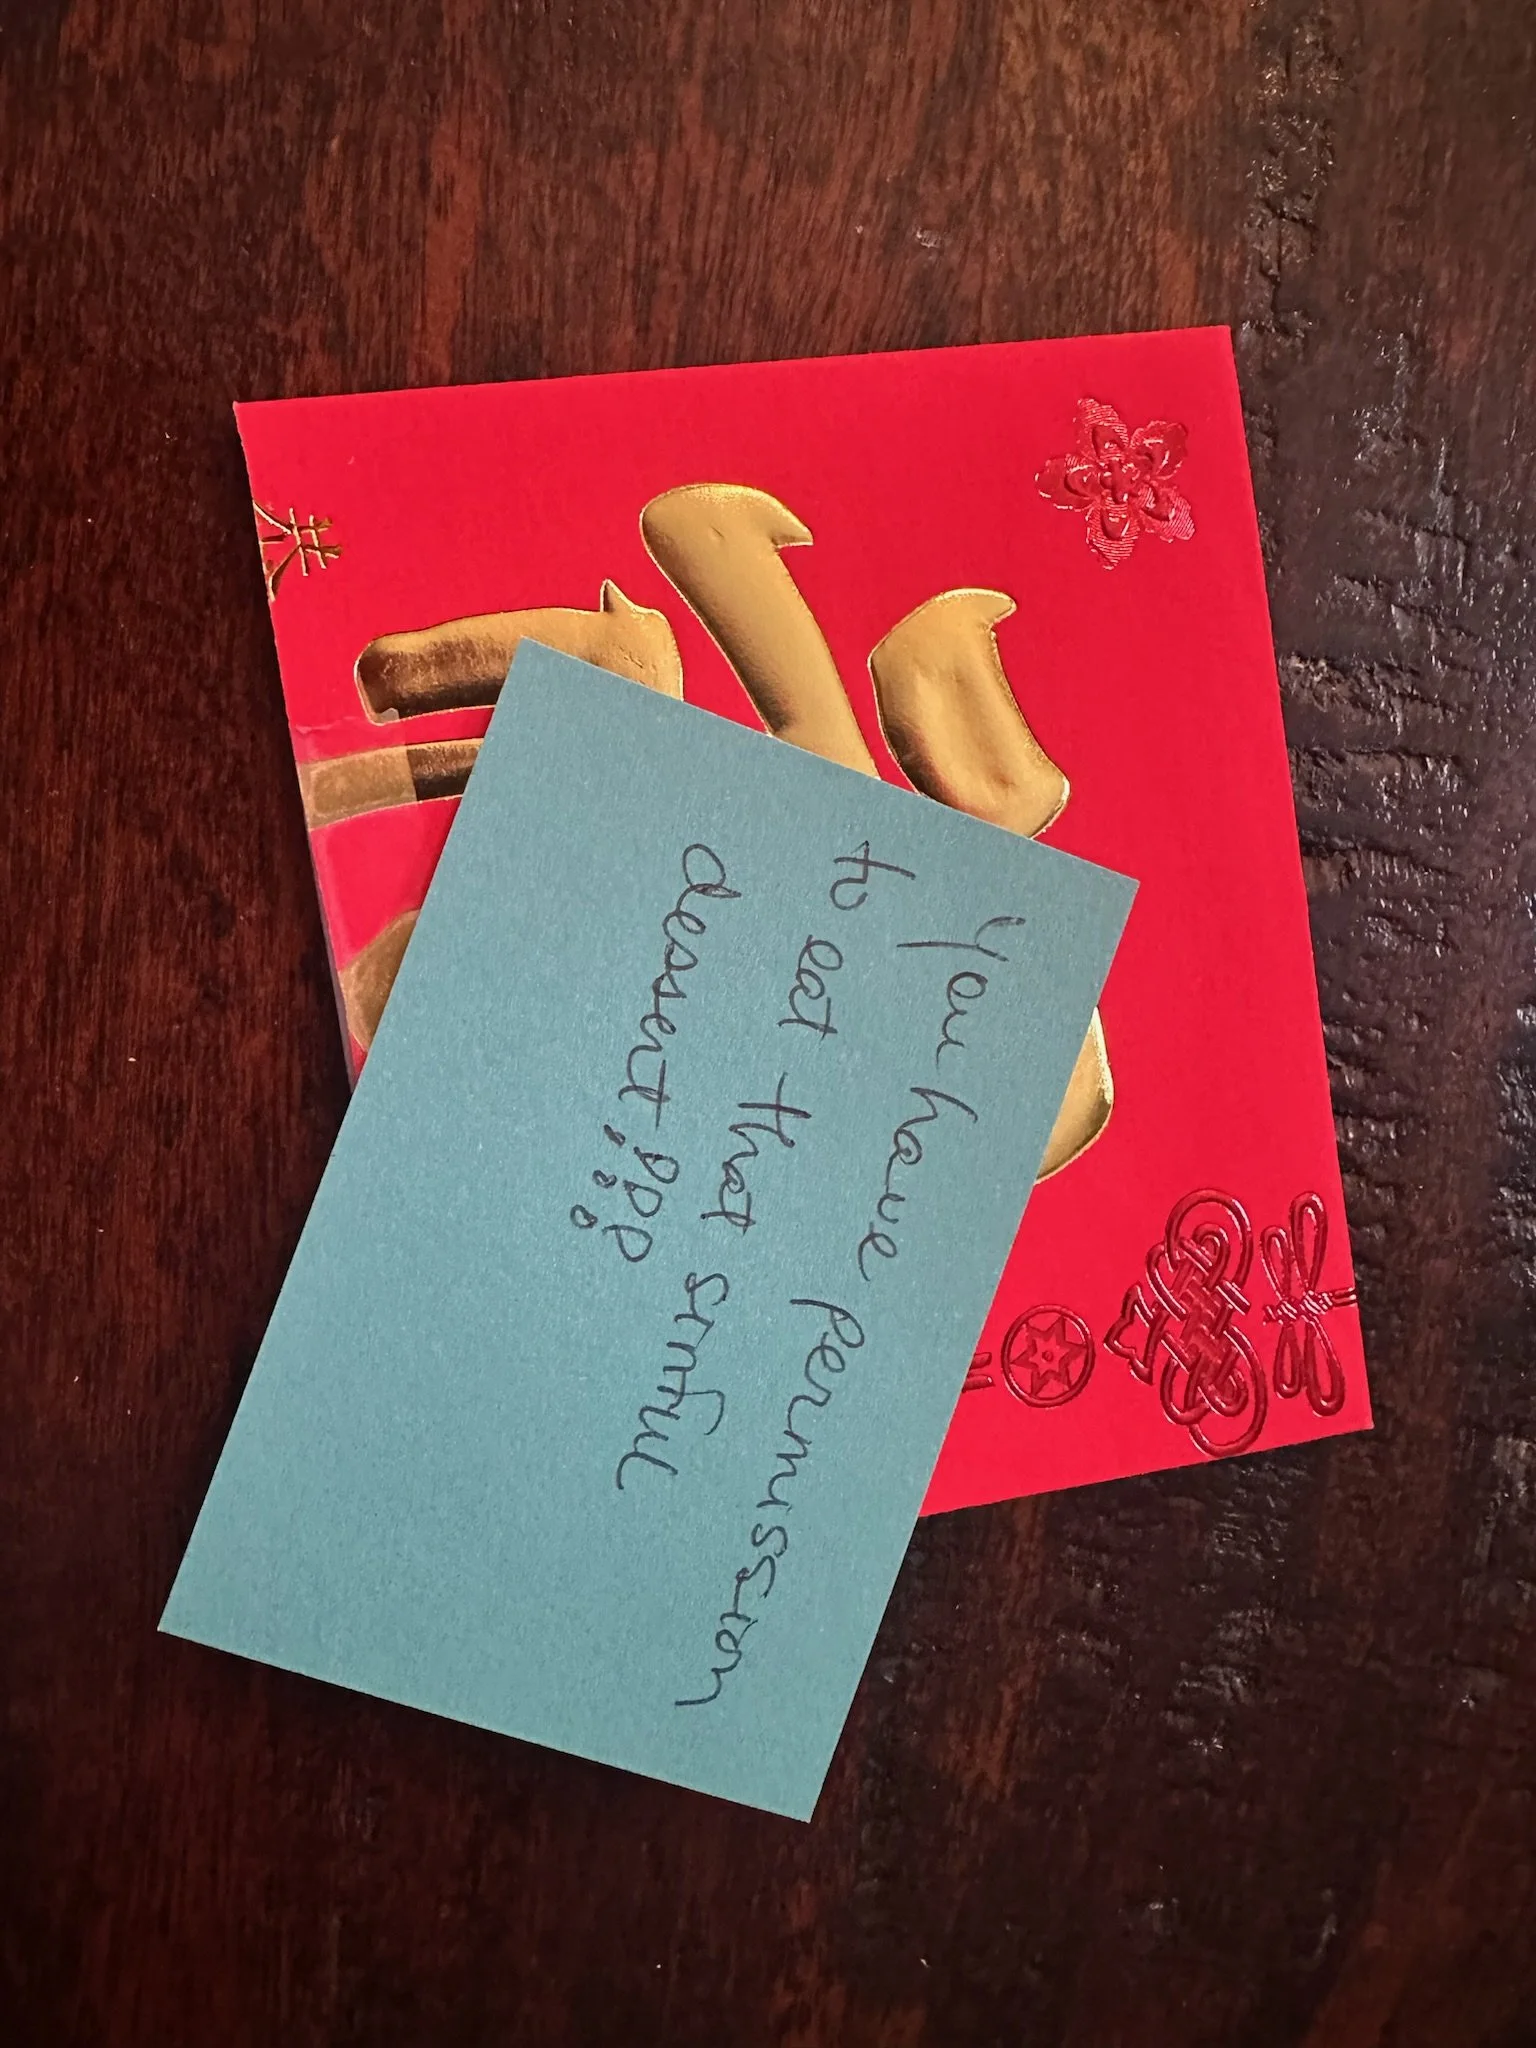 You have permission
to eat that sinful
dessert!!!